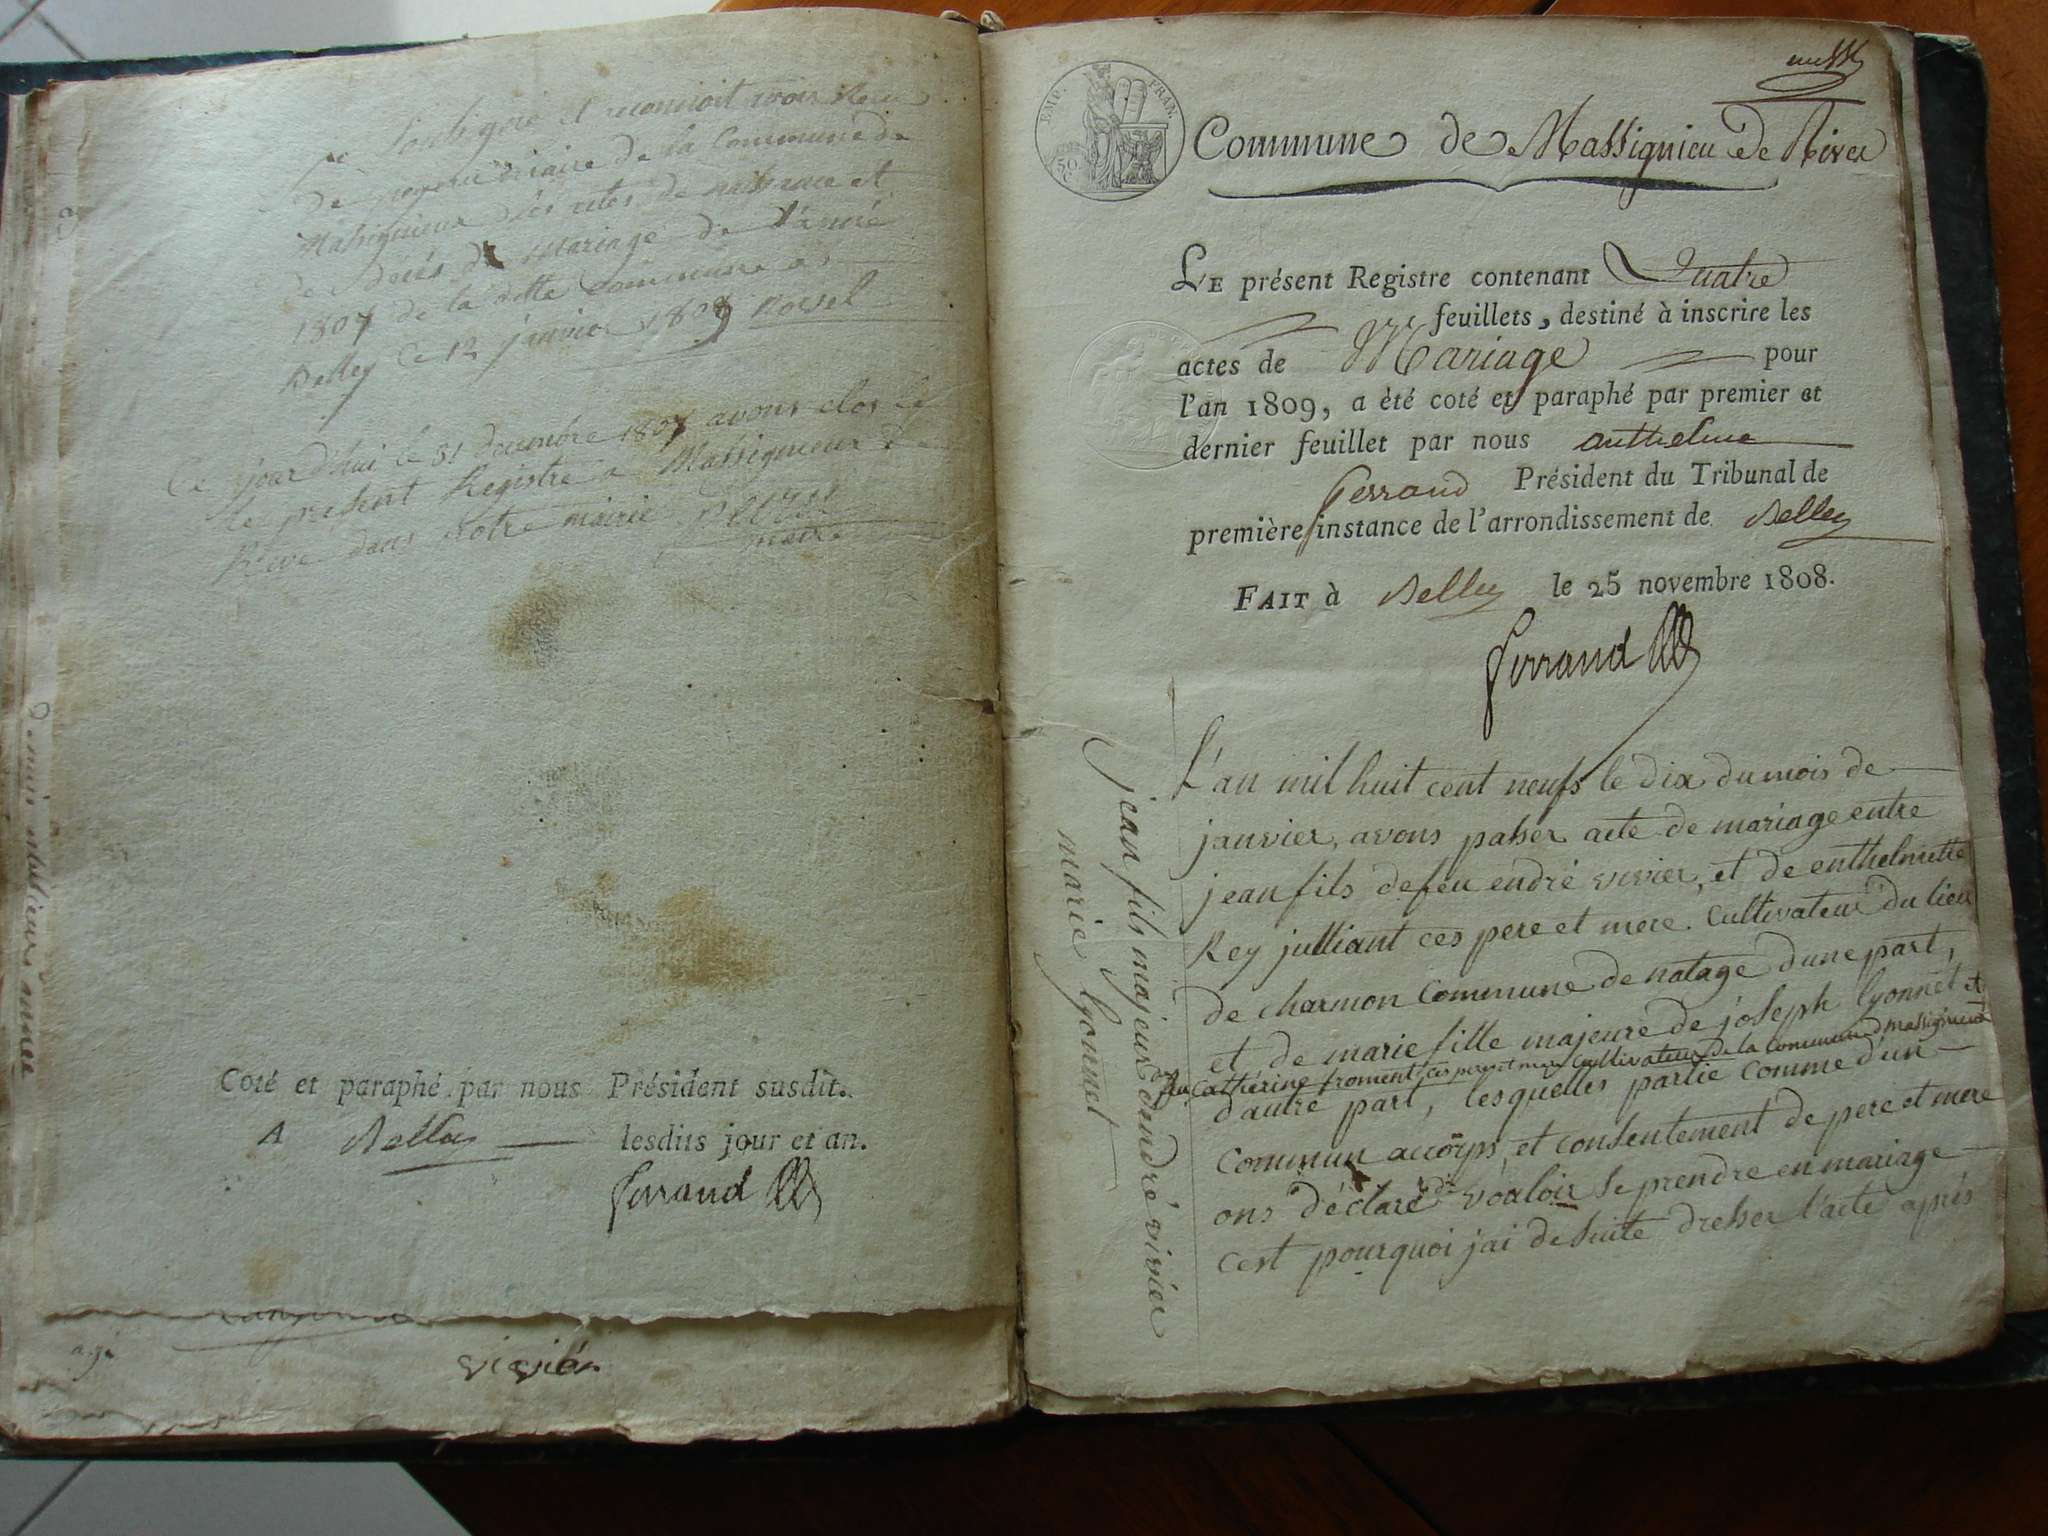 Je soubsigné et reconnoit avoir Recu
de maire de la Commune de
Massignieux des actes de naissance et
de décés de Mariage de L'année
1807 de la ditte Commune a
Belley Ce 12 janvier 1808
Ce jourd'hui le 31 decembre 1807 avons clos le
le present Registre a Massignieux de
Rive dans notre mairie
maire
Coté et paraphé par nous Président susdit.
A Belley lesdits jour et an.
Ferrand
vivier
Commune de Massignieu de Rives
EMP. FRAN.
50
LE présent Registre contenant Quatre
feuillets, destiné à inscrire les
actes de Mariage pour
l'an 1809, a été coté et paraphé par premier et
dernier feuillet par nous anthelme
ferrand Président du Tribunal de
première instance de l'arrondissement de Belley
FAIT à Belley le 25 novembre 1808.
Ferrand
jean fils majeur endré vivier
marie lyonnet
L'an mil huit cent neufs le dix du mois de
janvier, avons passer acte de mariage entre
jean fils defeu endré vivier, et de enthelmette
Rey julliant ces pere et mere. Cultivateur du lieu
de charmon Commune de natage d'une part,
et de marie fille majeure de joseph lyonnet et
Catherine froment, ces pere et mere Cultivateur de la Commune d massignieu
d'autre part, lesquelles partie comme d'un
Commun accorps, et consentement de pere et mere
ons déclaré de vouloir se prendre en mariage
C'est pourquoi jai de suite dresser l'acte aprés